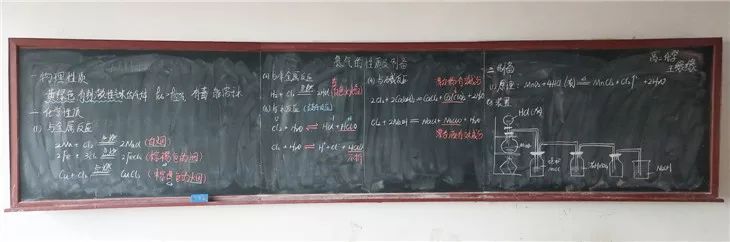 氯气的性质及制备
一 物理性质
黄绿色有刺激性味的气体 密度>空气 有毒 能溶于水
二 化学性质
(1) 与金属反应
2Na + Cl₂ 点燃 2NaCl (白烟)
2Fe + 3Cl₂ 点燃 2FeCl₃ (棕褐色的烟)
Cu + Cl₂ 点燃 CuCl₂ (棕黄色的烟)
(2) 与非金属反应
H₂ + Cl₂ 点燃 2HCl
(3) 与水反应
Cl₂ + H₂O ⇌ HCl + HClO
Cl₂ + H₂O ⇌ H⁺ + Cl⁻ + HClO
(4) 与碱反应
2Cl₂ + 2Ca(OH)₂ = CaCl₂ + Ca(ClO)₂ + 2H₂O
Cl₂ + 2NaOH = NaCl + NaClO + H₂O
三 制备
(1) 原理: MnO₂ + 4HCl (浓) △ MnCl₂ + Cl₂↑ + 2H₂O
(2) 装置
HCl (浓)
MnO₂
饱和
NaCl
浓H₂SO₄
NaOH
高一化学